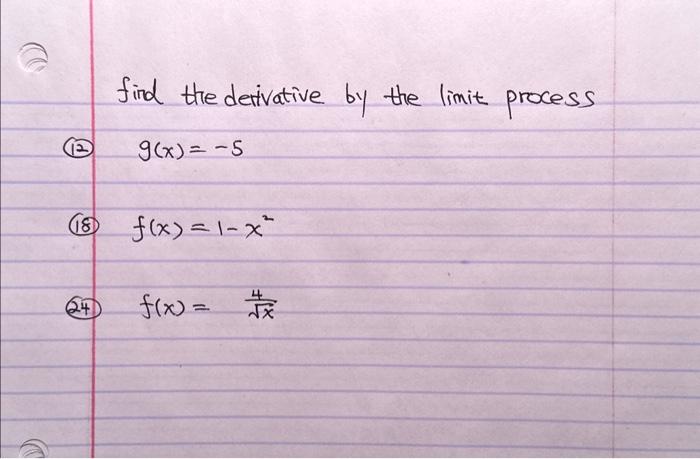 find the derivative by the limit process
12 g(x) = -5
18 f(x) = 1-x²
24 f(x) = 4/√x